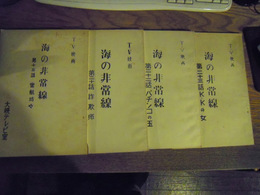 TV映画
海の非常線
大映テレビ室
TV映画
海の非常線
第三十話 詐欺師
TV映画
海の非常線
第三十二話 パチンコの玉
TV映画
海の非常線
第三十三話 K・Kの女